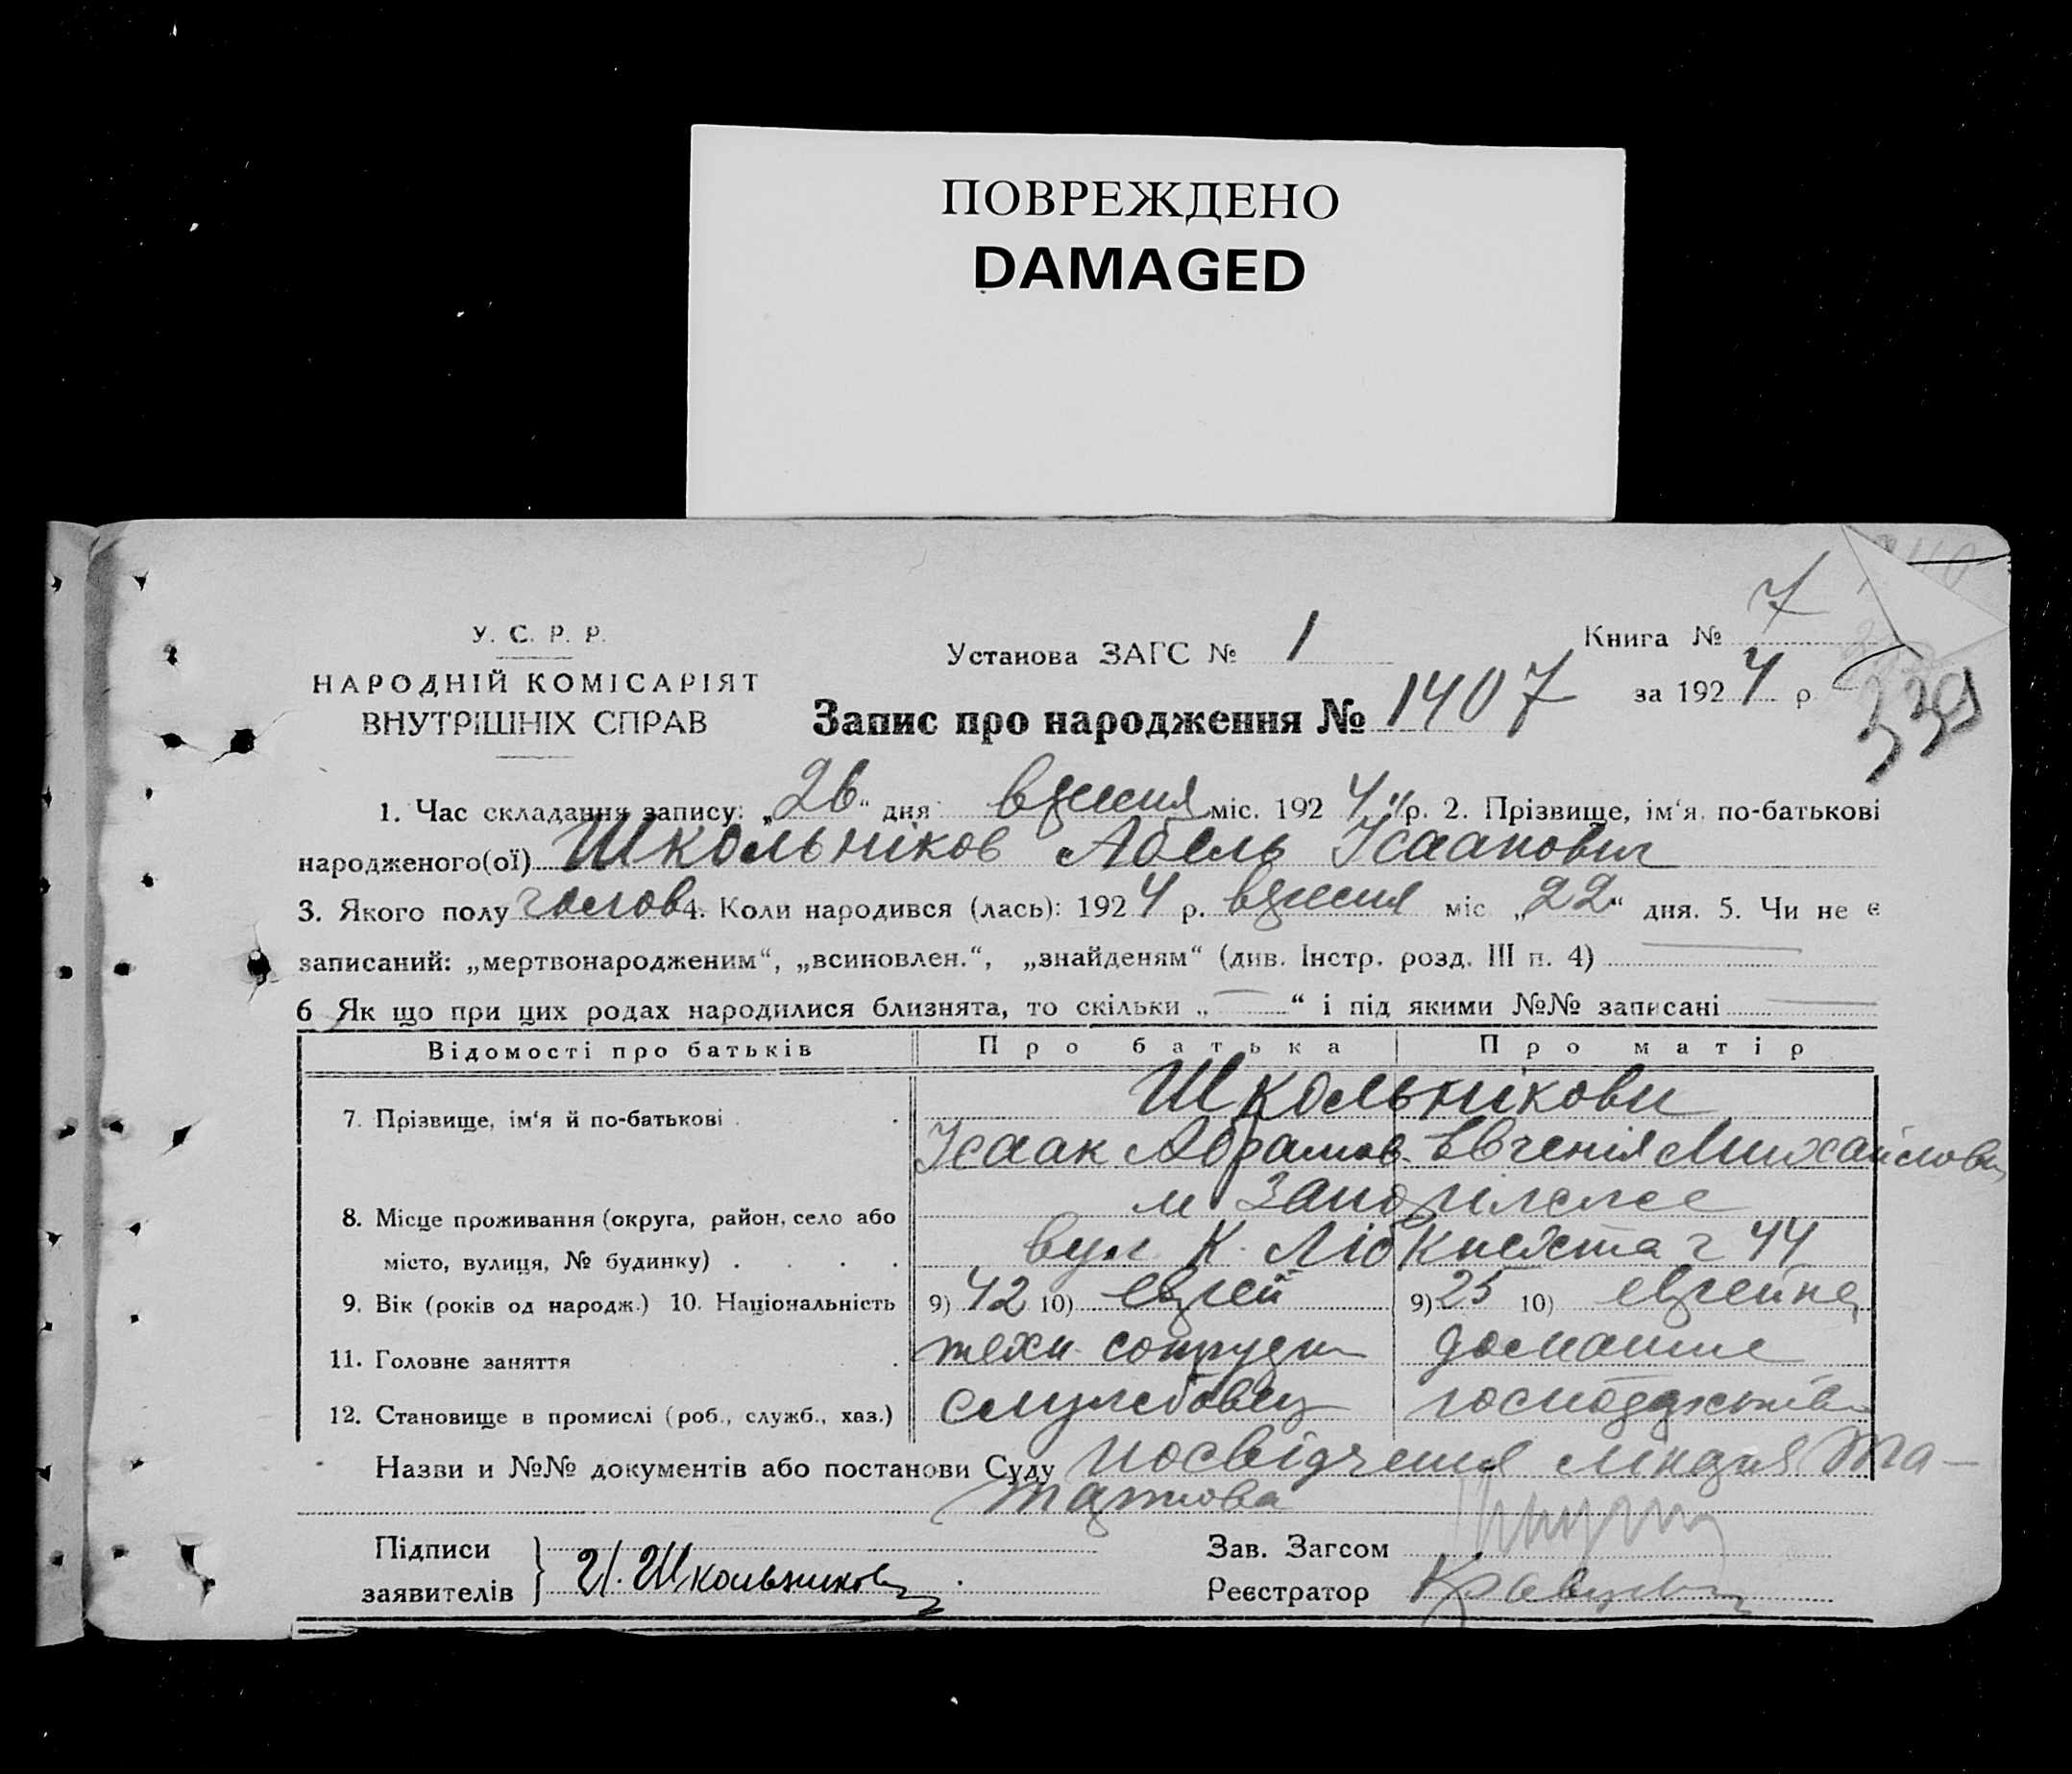 ПОВРЕЖДЕНО
DAMAGED
У. С. Р. Р.
НАРОДНІЙ КОМІСАРІЯТ
ВНУТРІШНІХ СПРАВ
Установа ЗАГС № 1
Книга № 7
за 1924 р
339
Запис про народження № 1407
1. Час складання запису: „26" дня вересня міс. 1924 р. 2. Прізвище, ім'я, по-батькові
народженого(ої) Школьніков Абель Ісаакович
3. Якого полу чолов 4. Коли народився (лась): 1924 р. вересня міс „22" дня. 5. Чи не є
записаний: „мертвонародженим", „всиновлен.", „знайденям" (див. Інстр. розд. III п. 4)
6 Як що при цих родах народилися близнята, то скільки „ " і під якими №№ записані
Відомості про батьків Про батька Про матір
7. Прізвище, ім'я й по-батькові Школьнікови
Ісаак Абрамов. Євгенія Михайлова
8. Місце проживання (округа, район, село або м Запоріжжє
місто, вулиця, № будинку) вул К. Лібкнехта ч 44
9. Вік (років од народж.) 10. Національність 9) 42 10) еврей 9) 25 10) еврейка
11. Головне заняття техн. сотрудн домашне
12. Становище в промислі (роб., служб., хаз.) службовец господарство
Назви и №№ документів або постанови Суду посвідчення
Підписи
заявителів } И. Школьников
Зав. Загсом
Реєстратор